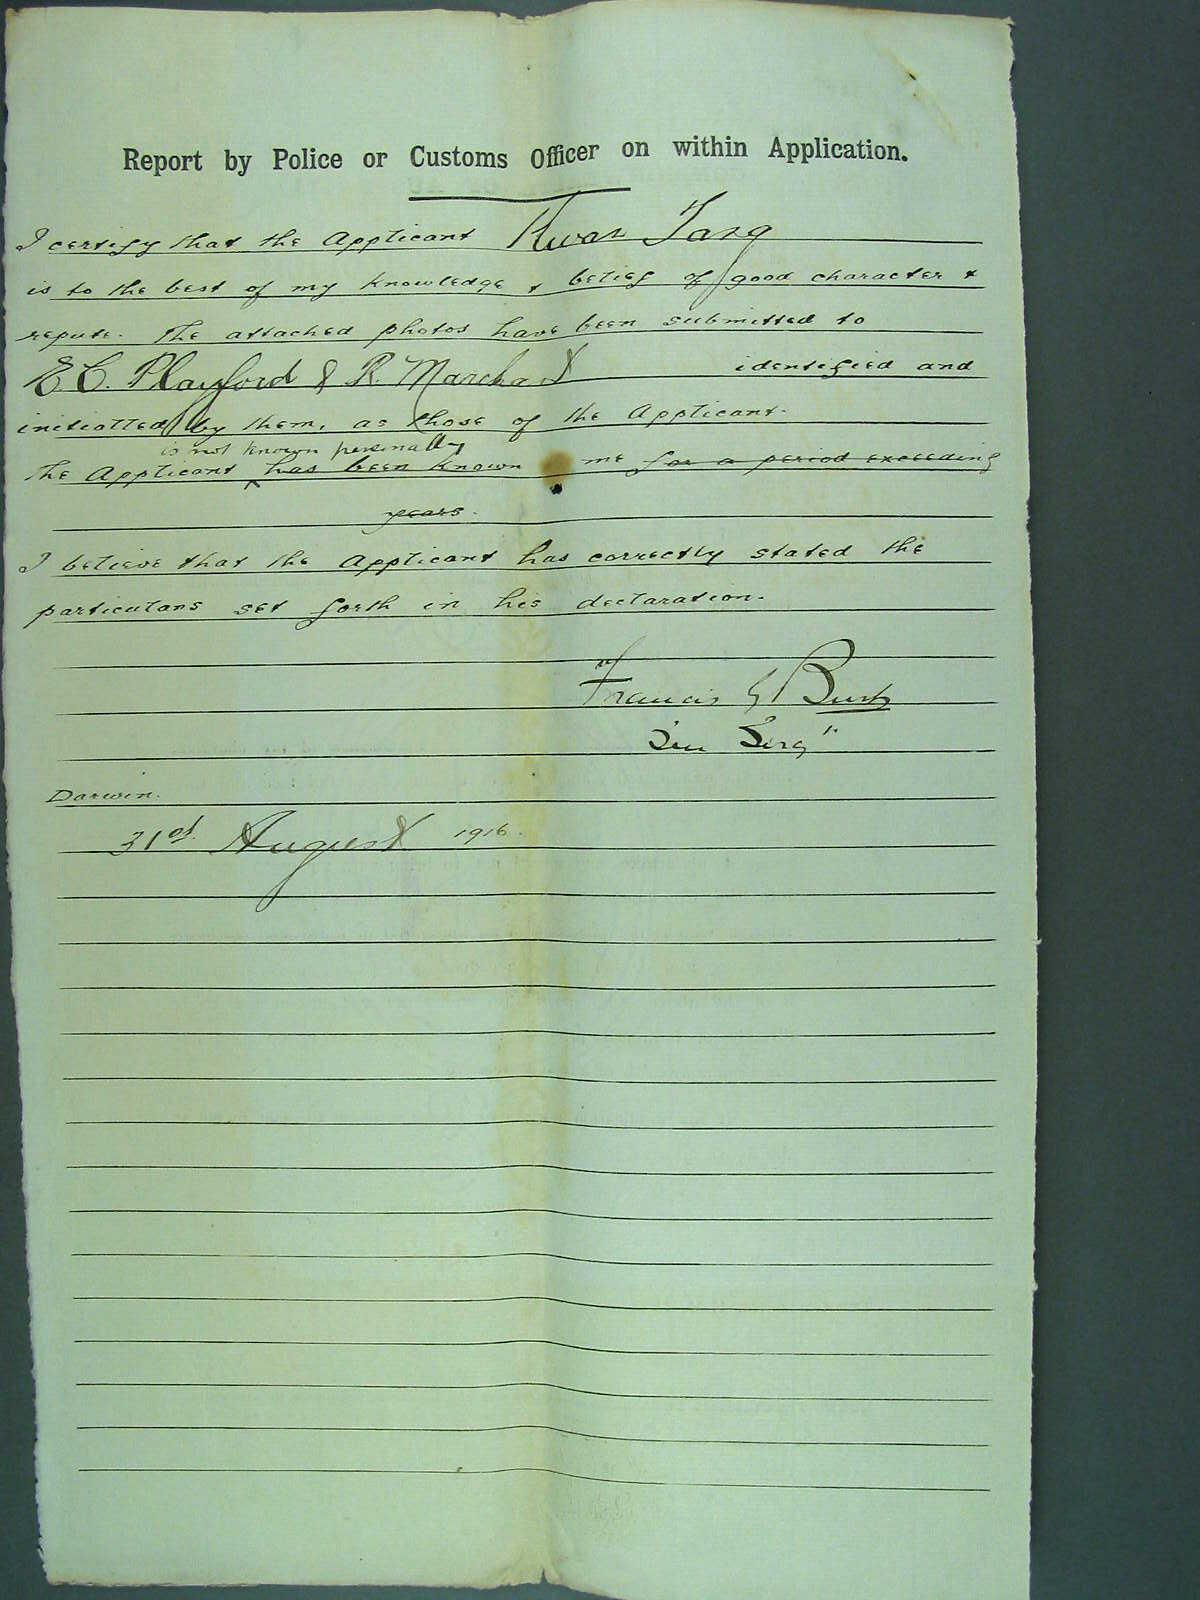 Report by Police or Customs Officer on within Application.
I certify that the Applicant Kwan Tang
is to the best of my knowledge & belief of good character &
repute. The attached photos have been submitted to
E. C. Playford & R. Marchant identified and
initialled by them, as those of the Applicant.
is not known personally
The Applicant has been known me for a period exceeding
years.
I believe that the Applicant has correctly stated the
particulars set forth in his declaration.
Francis G
Darwin.
31st August 1916.